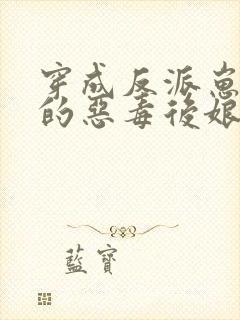 穿成反派崽
的惡毒後娘
藍寶